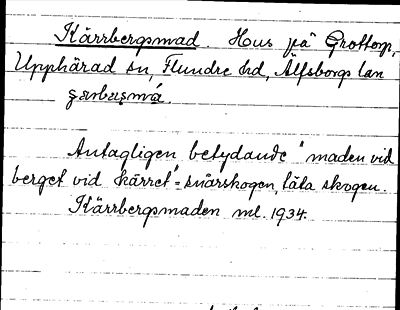 Kärrbergsmad. Hus på Grottorp,
Upphärad sn, Flundre hd, Älfsborgs län
Antagligen betydande "maden vid
berget vid kärret" = snårskogen, täta skogen.
Kärrbergsmaden ml. 1934.